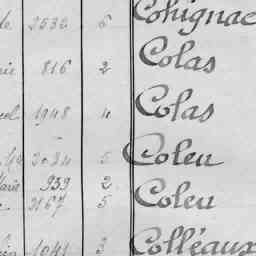 2532 6 Cohignac
816 2 Colas
1948 4 Colas
2024 5 Coleu
Marie 939 2
2167 5 Coleu
1041 3 Colléaux